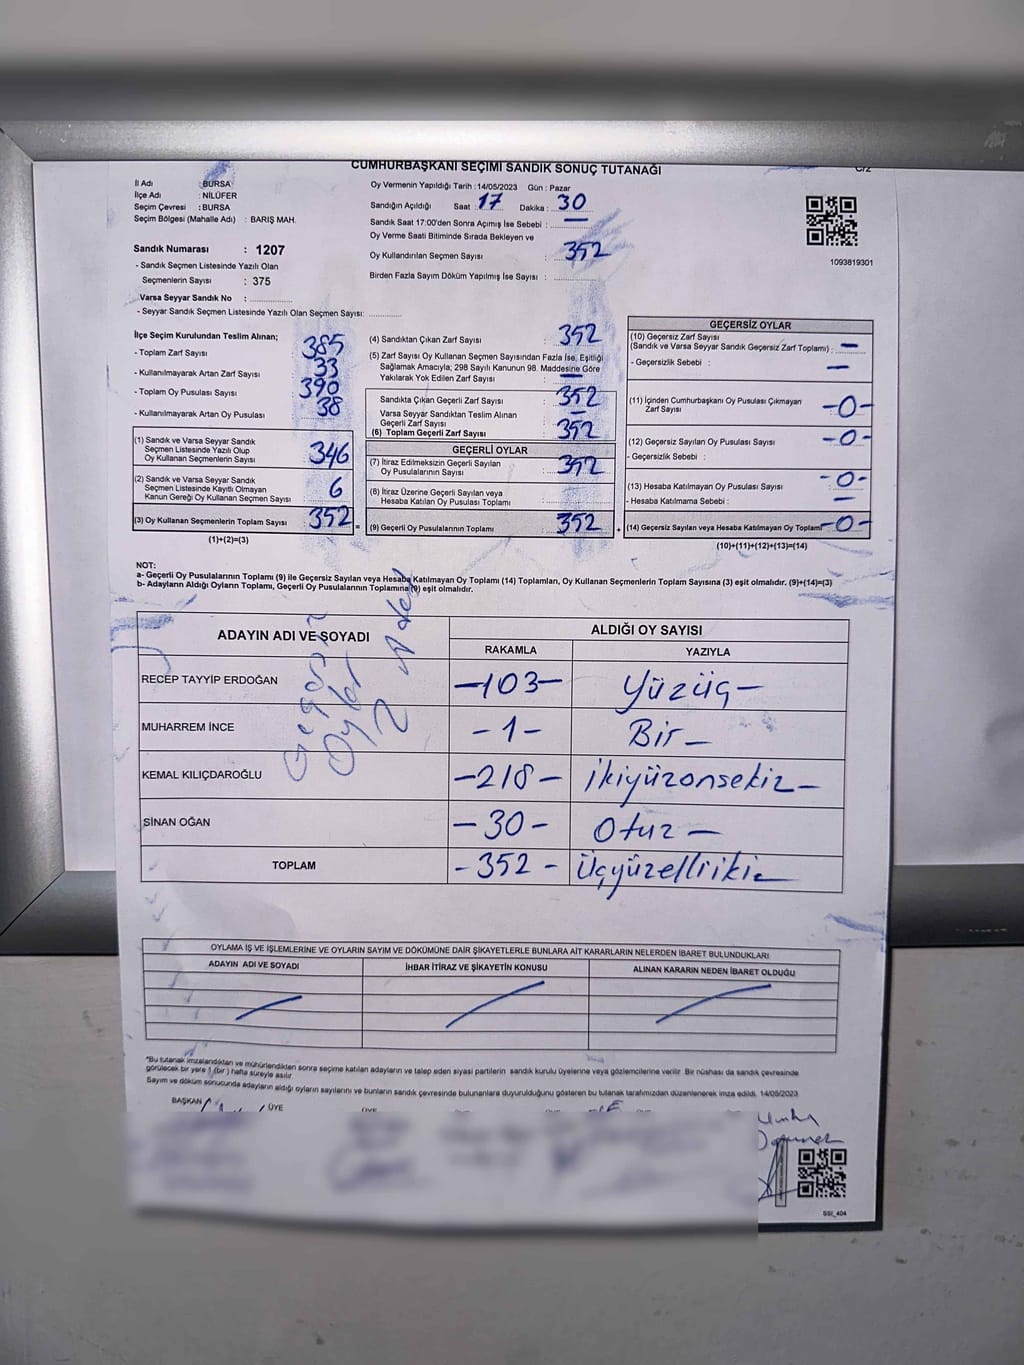 CUMHURBAŞKANI SEÇİMİ SANDIK SONUÇ TUTANAĞI
İl Adı : BURSA
İlçe Adı : NİLÜFER
Seçim Çevresi : BURSA
Seçim Bölgesi (Mahalle Adı) : BARIŞ MAH.
Sandık Numarası : 1207
- Sandık Seçmen Listesinde Yazılı Olan
Seçmenlerin Sayısı : 375
Varsa Seyyar Sandık No :
- Seyyar Sandık Seçmen Listesinde Yazılı Olan Seçmen Sayısı:
Oy Vermenin Yapıldığı Tarih : 14/05/2023 Gün : Pazar
Sandığın Açıldığı Saat : 17 Dakika : 30
Sandık Saat 17:00'den Sonra Açımış İse Sebebi : —
Oy Verme Saati Bitiminde Sırada Bekleyen ve
Oy Kullandırılan Seçmen Sayısı : 352
Birden Fazla Sayım Döküm Yapılmış İse Sayısı :
1093819301
İlçe Seçim Kurulundan Teslim Alınan;
- Toplam Zarf Sayısı 385
- Kullanılmayarak Artan Zarf Sayısı 33
- Toplam Oy Pusulası Sayısı 390
- Kullanılmayarak Artan Oy Pusulası 38
(1) Sandık ve Varsa Seyyar Sandık
Seçmen Listesinde Yazılı Olup
Oy Kullanan Seçmenlerin Sayısı 346
(2) Sandık ve Varsa Seyyar Sandık
Seçmen Listesinde Kayıtlı Olmayan
Kanun Gereği Oy Kullanan Seçmen Sayısı 6
(3) Oy Kullanan Seçmenlerin Toplam Sayısı 352
(1)+(2)=(3)
(4) Sandıktan Çıkan Zarf Sayısı : 352
(5) Zarf Sayısı Oy Kullanan Seçmen Sayısından Fazla İse, Eşitliği
Sağlamak Amacıyla; 298 Sayılı Kanunun 98. Maddesine Göre
Yakılarak Yok Edilen Zarf Sayısı : —
Sandıkta Çıkan Geçerli Zarf Sayısı : 352
Varsa Seyyar Sandıktan Teslim Alınan
Geçerli Zarf Sayısı : —
(6) Toplam Geçerli Zarf Sayısı : 352
GEÇERLİ OYLAR
(7) İtiraz Edilmeksizin Geçerli Sayılan
Oy Pusulalarının Sayısı : 352
(8) İtiraz Üzerine Geçerli Sayılan veya
Hesaba Katılan Oy Pusulası Toplamı :
(9) Geçerli Oy Pusulalarının Toplamı : 352
GEÇERSİZ OYLAR
(10) Geçersiz Zarf Sayısı
(Sandık ve Varsa Seyyar Sandık Geçersiz Zarf Toplamı) : —
- Geçersizlik Sebebi : —
(11) İçinden Cumhurbaşkanı Oy Pusulası Çıkmayan
Zarf Sayısı -0-
(12) Geçersiz Sayılan Oy Pusulası Sayısı : -0-
- Geçersizlik Sebebi :
(13) Hesaba Katılmayan Oy Pusulası Sayısı : -0-
- Hesaba Katılmama Sebebi : —
(14) Geçersiz Sayılan veya Hesaba Katılmayan Oy Toplamı -0-
(10)+(11)+(12)+(13)=(14)
NOT:
a- Geçerli Oy Pusulalarının Toplamı (9) ile Geçersiz Sayılan veya Hesaba Katılmayan Oy Toplamı (14) Toplamları, Oy Kullanan Seçmenlerin Toplam Sayısına (3) eşit olmalıdır. (9)+(14)=(3)
b- Adayların Aldığı Oyların Toplamı, Geçerli Oy Pusulalarının Toplamına (9) eşit olmalıdır.
ADAYIN ADI VE SOYADI ALDIĞI OY SAYISI
RAKAMLA YAZIYLA
RECEP TAYYİP ERDOĞAN -103- Yüzüç-
MUHARREM İNCE -1- Bir-
KEMAL KILIÇDAROĞLU -218- ikiyüzonsekiz-
SİNAN OĞAN -30- Otuz-
TOPLAM -352- Üçyüzelliiki-
Oylar
2
OYLAMA İŞ VE İŞLEMLERİNE VE OYLARIN SAYIM VE DÖKÜMÜNE DAİR ŞİKAYETLERLE BUNLARA AİT KARARLARIN NELERDEN İBARET BULUNDUKLARI
ADAYIN ADI VE SOYADI İHBAR İTİRAZ VE ŞİKAYETİN KONUSU ALINAN KARARIN NEDEN İBARET OLDUĞU
*Bu tutanak imzalandıktan ve mühürlendikten sonra seçime katılan adayların ve talep eden siyasi partilerin sandık kurulu üyelerine veya gözlemcilerine verilir. Bir nüshası da sandık çevresinde
görülecek bir yere 1 (bir) hafta süreyle asılır.
Sayım ve döküm sonucunda adayların aldığı oyların sayılarını ve bunların sandık çevresinde bulunanlara duyurulduğunu gösteren bu tutanak tarafımızdan düzenlenerek imza edildi. 14/05/2023
BAŞKAN ÜYE ÜYE
SSİ_404